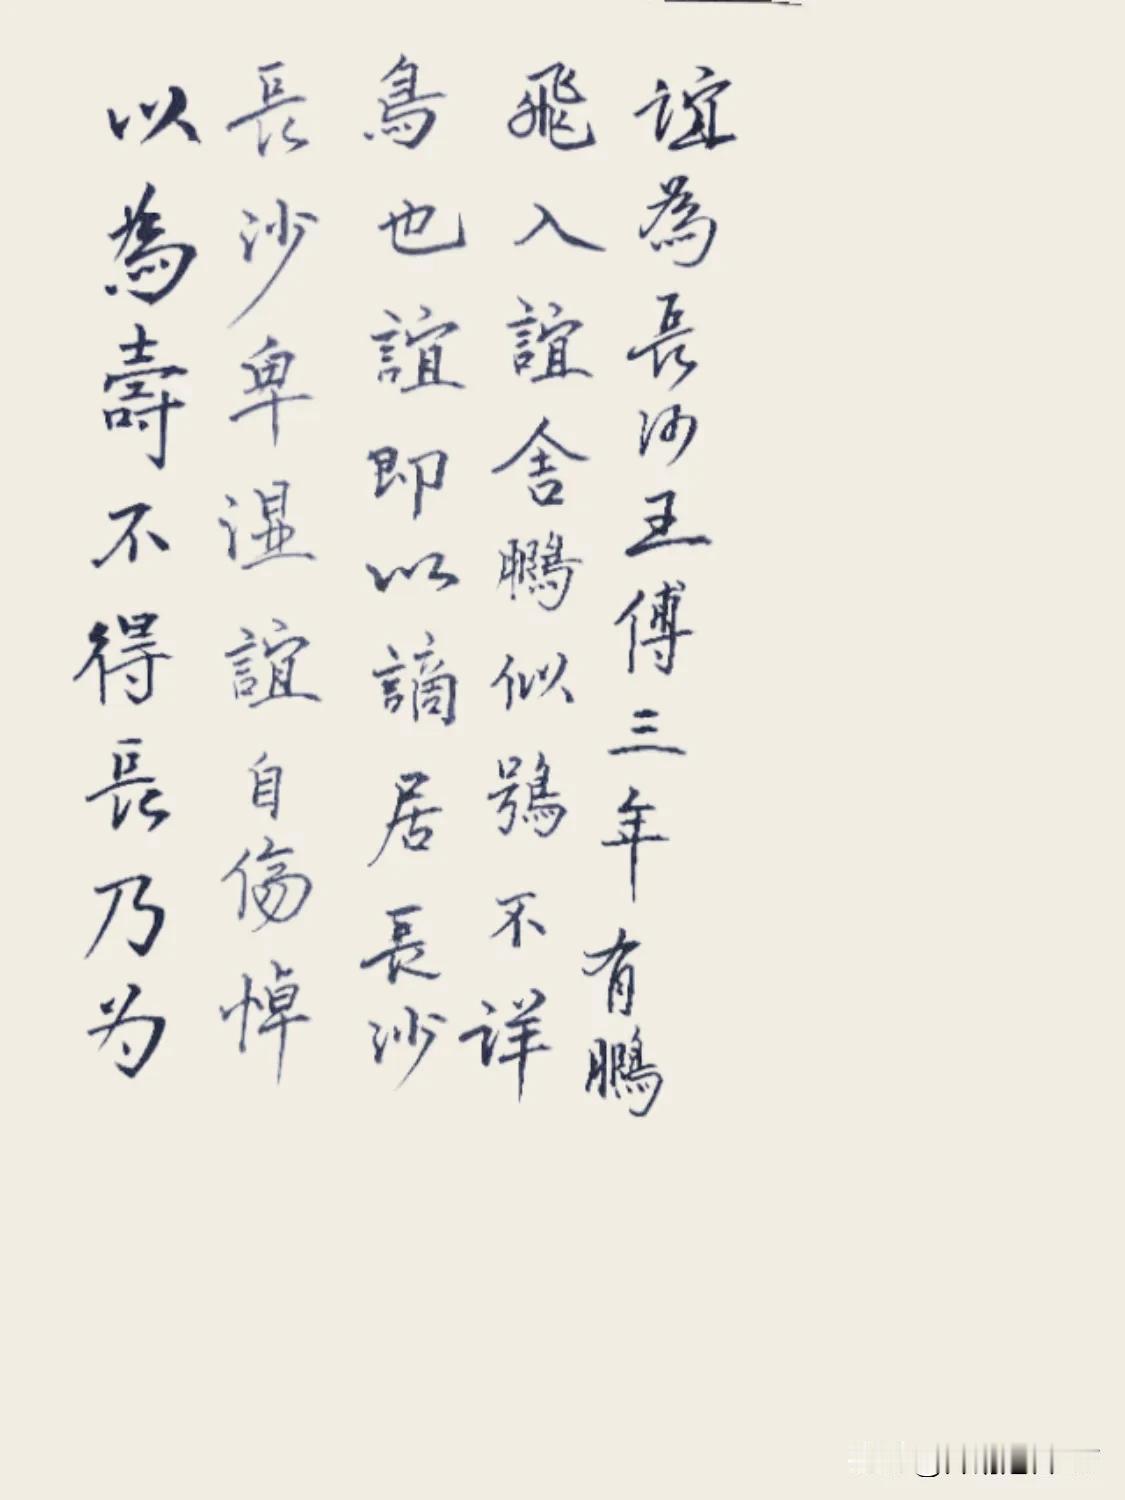 誼為長沙王傅三年有鵩
飛入誼舍鵩似鴞不詳
鳥也誼即以謫居長沙
長沙卑湿誼自傷悼
以為壽不得長乃为